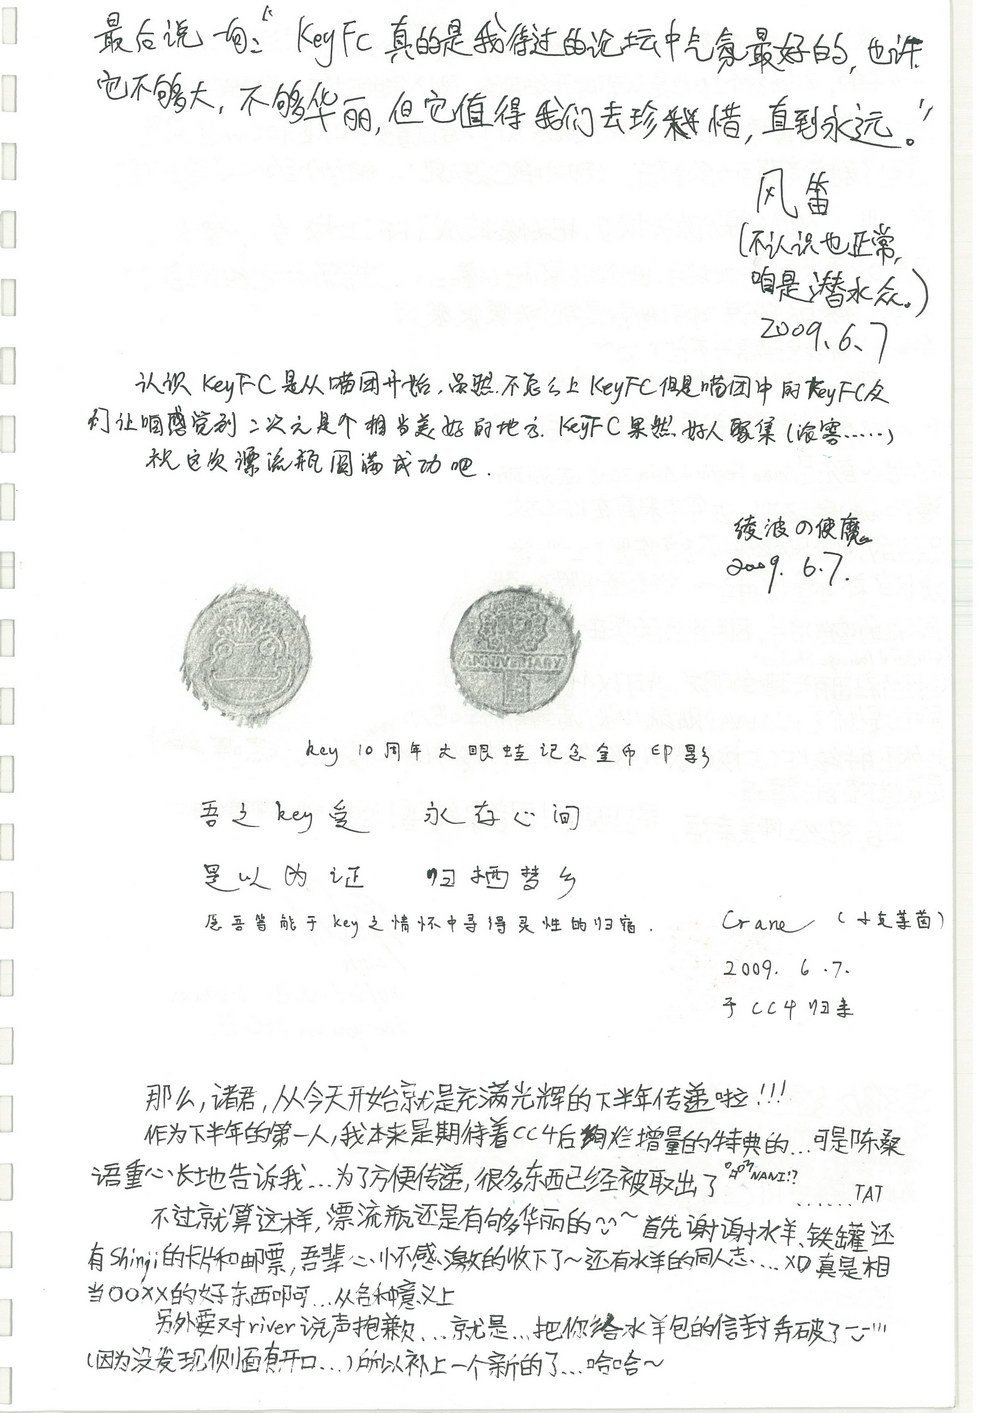 最后说一句：“KeyFC真的是我待过的论坛中气氛最好的，也许
它不够大，不够华丽，但它值得我们去珍惜，直到永远。”
风笛
(不认识也正常，
咱是潜水众。)
2009.6.7
认识KeyFC是从喵团开始，虽然不怎么上KeyFC但是喵团中的KeyFC友
们让咱感觉到二次元是个相当美好的地方. KeyFC果然好人聚集(滚雾……)
祝这次漂流瓶圆满成功吧.
绫波の使魔
2009. 6.7.
ANNIVERSARY
key 10周年大眼蛙记念金币印影
吾之key爱 永存心间
是以为证 归栖梦乡
愿吾皆能于key之情怀中寻得灵性的归宿.
Crane (小克莱茵)
2009. 6.7.
于CC4归来
那么，诸君，从今天开始就是充满光辉的下半年传递啦!!!
作为下半年的第一人，我本来是期待着CC4后绚烂增量的特典的…可是陈桑
语重心长地告诉我…为了方便传递，很多东西已经被取出了 NANI!? ……TAT
不过就算这样，漂流瓶还是有够华丽的~首先谢谢水羊、铁罐还
有Shinji的卡片和邮票，吾辈心怀感激的收下了~还有水羊的同人志……XD真是相
当OOXX的好东西啊呵…从各种意义上
另外要对river说声抱歉…就是…把你给水羊包的信封弄破了
(因为没发现侧面有开口…)所以补上一个新的了…哈哈~